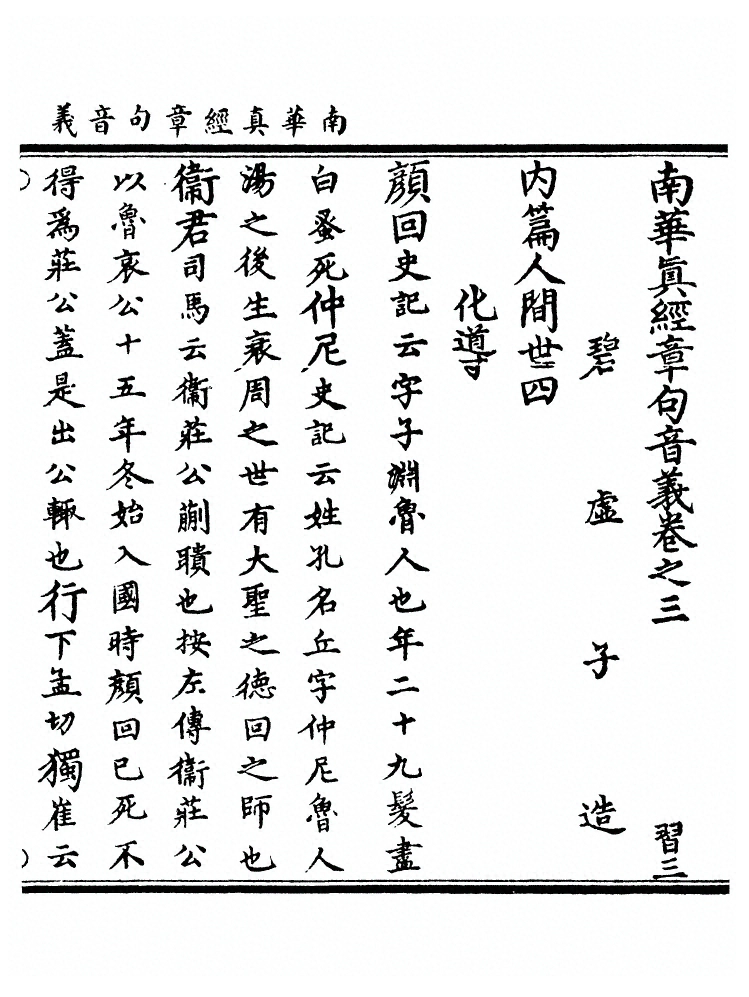 南華真經章句音義
南華眞經章句音義卷之三 習三
碧虛子造
内篇人間世四
化導
顏回史記云字子淵魯人也年二十九髮盡
白蚤死仲尼史記云姓孔名丘字仲尼魯人
湯之後生衰周之世有大聖之德回之師也
衞君司馬云衞莊公蒯聵也按左傳衞莊公
以魯哀公十五年冬始入國時顏回已死不
得爲莊公蓋是出公輒也行下孟切獨崔云